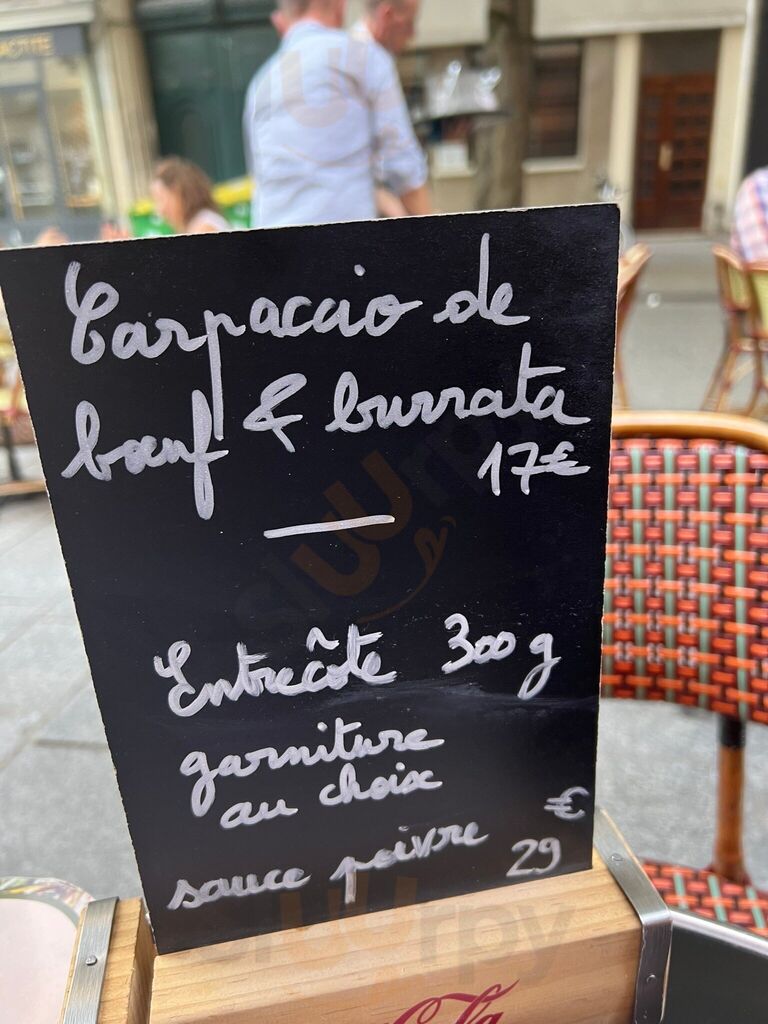 Carpaccio de
bœuf & burrata
17€
Entrecôte 300 g
garniture
au choix
€
sauce poivre 29
Sluurpy
Sluurpy